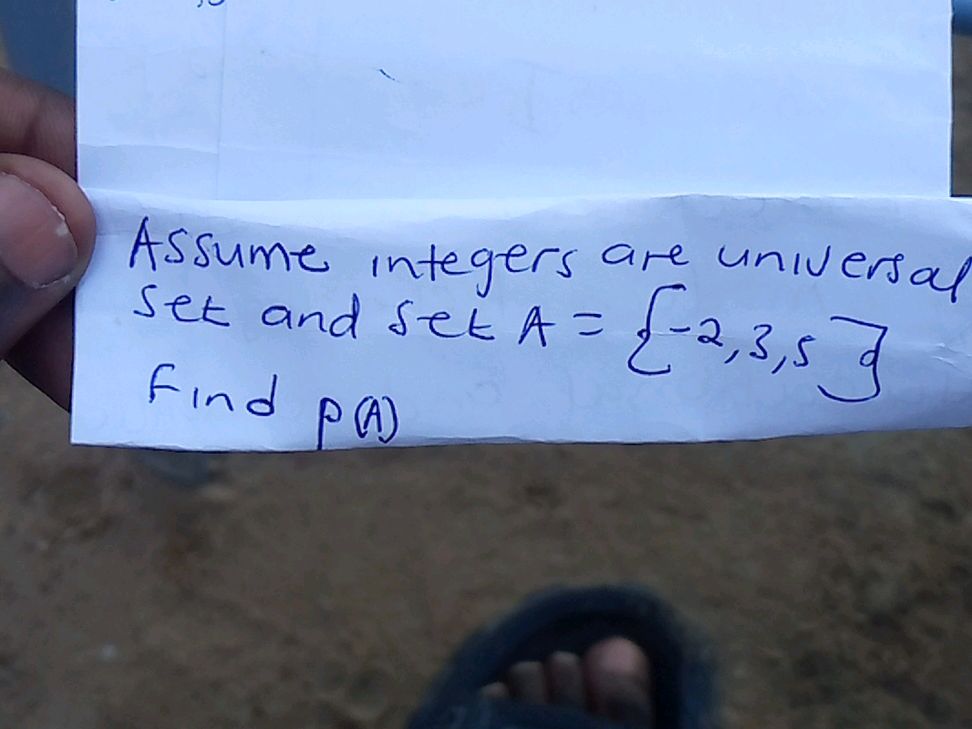 Assume integers are universal
set and set A = {-2,3,5}
Find p(A)